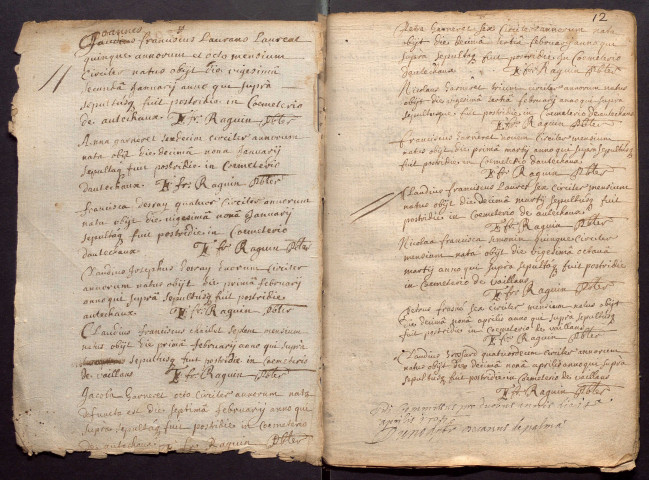 Joannes
franciscus Laurans Laureal
quinque annorum et octo mensium
circiter natus obijt die vigesima
secunda Januarij anno que supra
sepultusq fuit postridie in Coemeterio
de autechaux. fr. Raguin Pbter
Anna garneret sexdecim circiter annorum
nata obijt die decimâ nona Januarij
sepultaq fuit postridie in Coemeterio
dautechaux. fr. Raguin Pbter
francisca quatuor circiter annorum
nata obijt die vigesima nonâ Januarij
sepultaq fuit postridie in Coemeterio
dautechaux. fr. Raguin Pbter
Claudius Josephus duorum circiter
annorum natus obijt die primâ februarij
anno que suprâ sepultusq fuit postridie
autechaux. fr. Raguin Pbter
Claudius franciscus mensium
natus obijt die prima februarij anno qui supra
sepultusq fuit postridie in Coemeterio
de vaillans fr. Raguin Pbter
Jacoba Garneret octo circiter annorum nata
defuncta est die septimâ februarij anno que
supra sepultaq fuit postridie in Coemeterio
de autechaux. fr. Raguin Pbter
12
Garneret sex circiter annorum nata
obijt die decimâ tertiâ februarij anno que
supra sepultaq fuit postridie in Coemeterio
dautechaux. fr. Raguin Pbter
Nicolaus Garneret trium circiter annorum natus
obijt die vigesimâ tertiâ februarij anno qui supra
sepultusque fuit postridie in Coemeterio dautechaux
fr. Raguin Pbter
franciscus Garneret circiter mensium
natus obijt die primâ martij anno qui supra sepultusq
fuit postridie in Coemeterio dautechaux.
fr. Raguin Pbter
Claudius franciscus Lauret sex circiter mensium
natus obijt die decimâ martij sepultusq fuit
postridie in Coemeterio de autechaux.
fr. Raguin Pbter
Nicolaa francisca Simonin quinque circiter
mensium nata obijt die vigesima octavâ
martij anno qui supra sepultaq fuit postridie
in Coemeterio de vaillans.
fr. Raguin Pbter
Petrus sex circiter mensium natus obijt
die decimâ nonâ aprilis anno qui supra sepultusq
fuit postridie in Coemeterio de vaillans
fr. Raguin Pbter
Claudius quatuordecim circiter annorum
natus obijt die decimâ nonâ aprilis anno qui supra
sepultusq fuit postridie in Coemeterio de vaillans
fr. Raguin Pbter
aprilis
decanus de palma